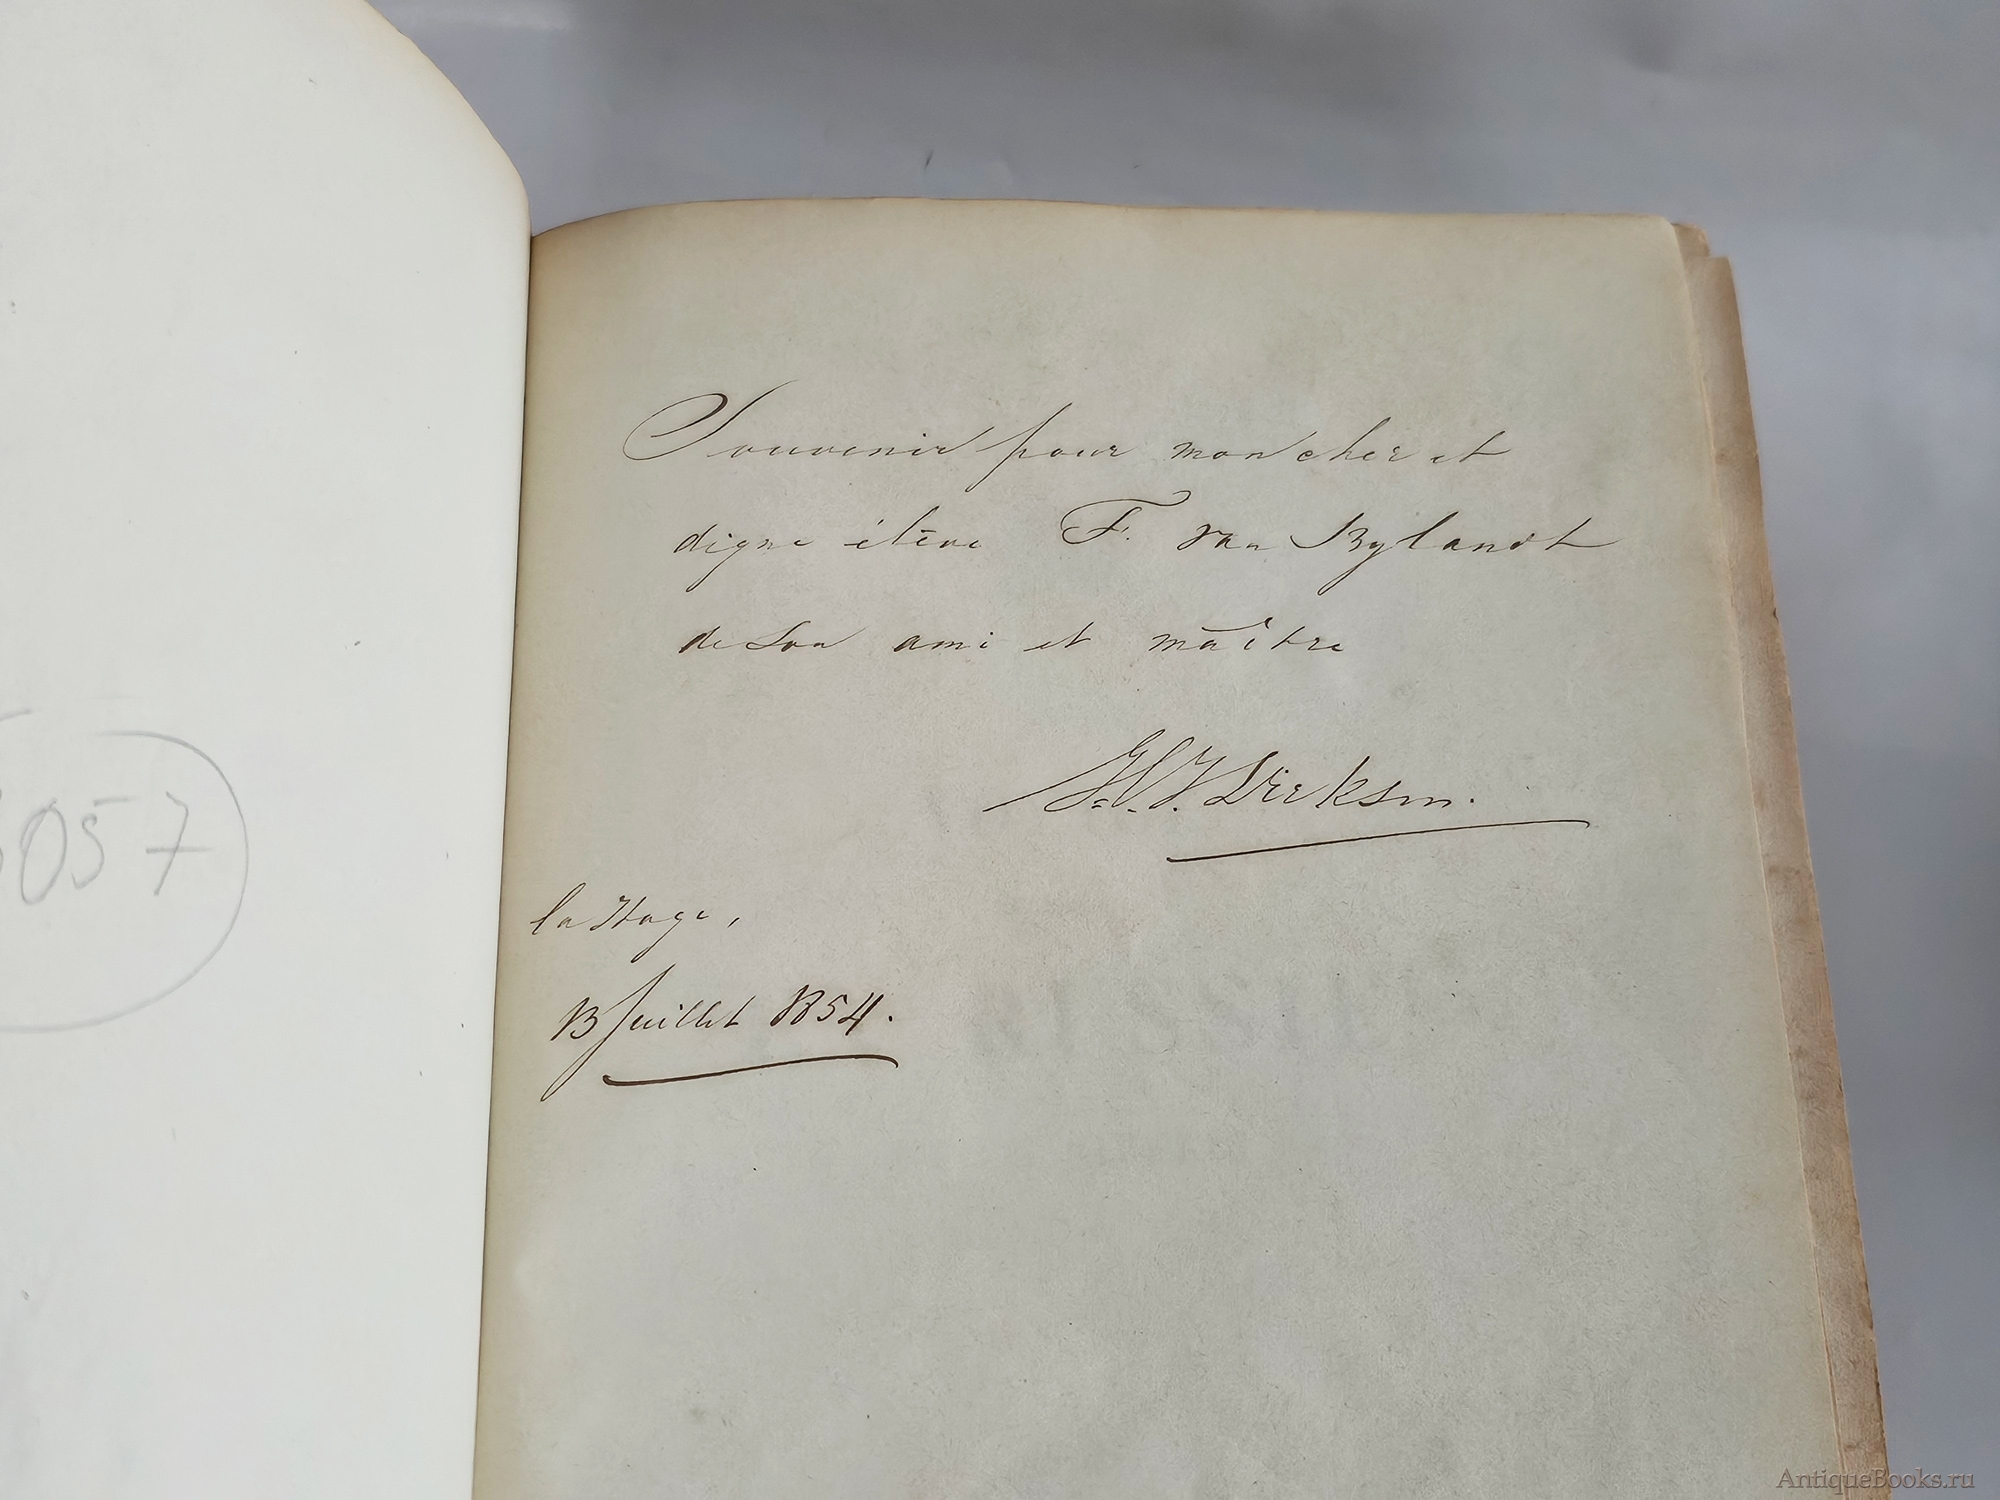 057
Souvenir pour mon cher et
digne élève F. van Bylandt
de son ami et maître
H. J. Dirksen.
la Haye,
13 Juillet 1854.
AntiqueBooks.ru